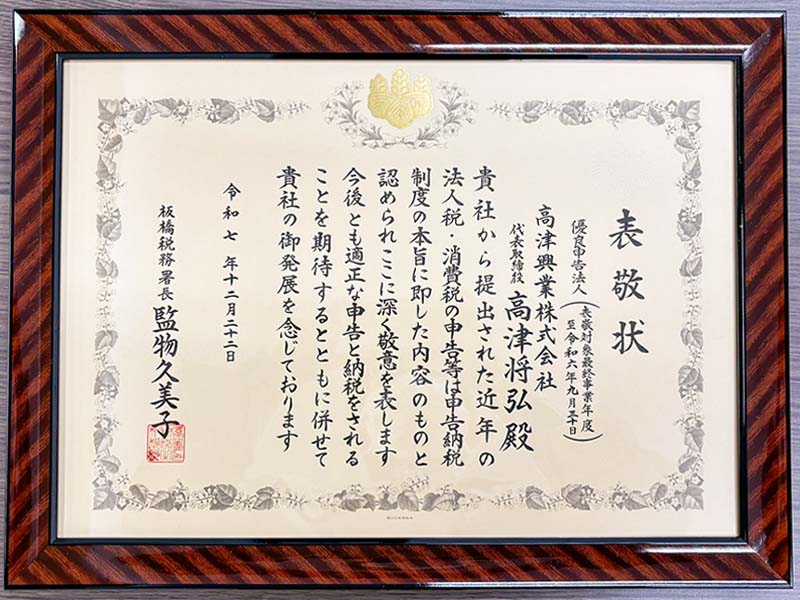 表敬状
優良申告法人
(表敬対象最終事業年度
至令和六年九月三十日)
高津興業株式会社
代表取締役 高津将弘殿
貴社から提出された近年の
法人税・消費税の申告等は申告納税
制度の本旨に即した内容のものと
認められここに深く敬意を表します
今後とも適正な申告と納税をされる
ことを期待するとともに併せて
貴社の御発展を念じております
令和七年十二月二十二日
板橋税務署長 監物久美子